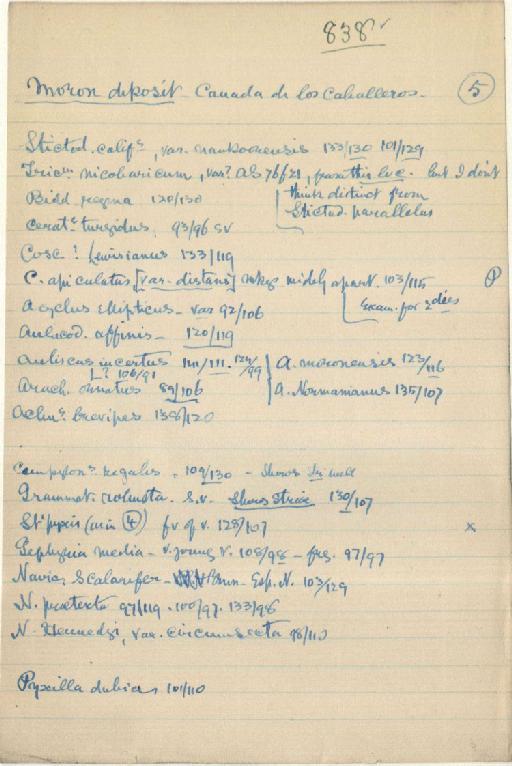 838
Moron deposit Canada de los Caballeros. 5
Stictod. califc, var. nankoorensis 133/130 101/129
Tricn nicobaricum, var? AS 76 f 21, from this loc. but I don't
think distinct from
Bidd regna 120/130
Stictod. parallelus
Cerats turgidus, 93/96 sv
Cosc ? Lewisianus 133/119
C. apiculatus [var. distans] mkgs widely apart. 103/115
Exam. for 2 dies
Acyclus ellipticus - var 92/106
Aulacod. affinis - 120/119
Auliscus incertus 111/111. 124/99
A. moronensis 123/116
? 106/91
Arach. ornatus 89/106
A. Normanianus 135/107
Achns brevipes 138/120
Campylons regalis, 109/130 - Shows well
Grammat. robusta. s.v. Shows striae 130/107
St' pyxis (min 4) fv of v. 128/107 x
Gephyria media - v. young v. 108/98 - frs. 97/97
Navia, Scalarifer - Brun - Esp. N. 103/129
N. praetexta 97/119. 100/97. 133/98
N. Hennedyi, var. circumsecta 98/110
Pyxilla dubia 101/110